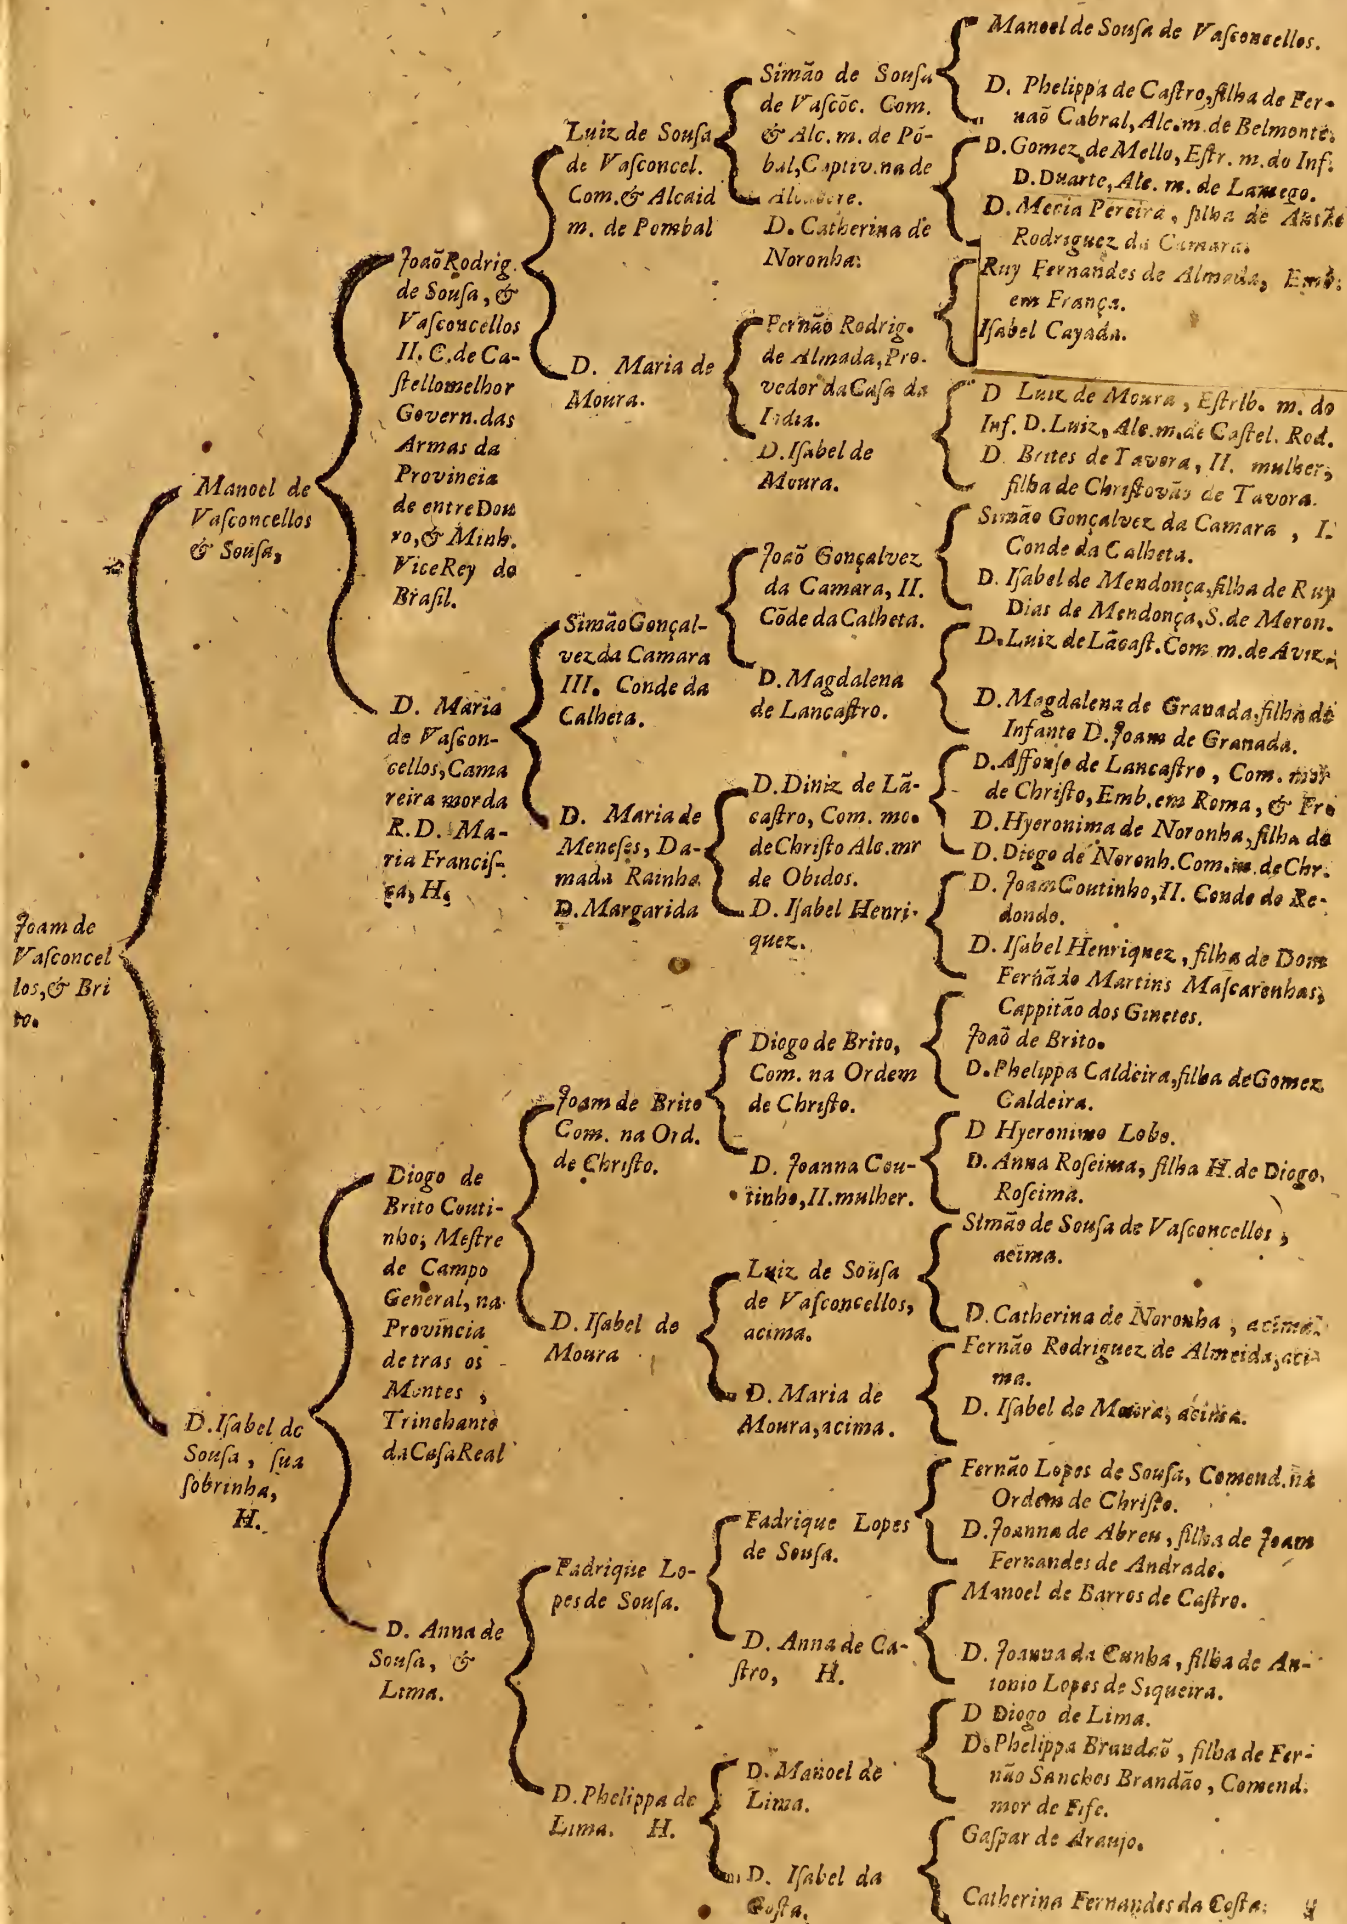 Joam de
Vaſconcel
los, & Bri
to.
Manoel de
Vaſconcellos
& Souſa,
D. Iſabel de
Souſa, ſua
ſobrinha,
H.
Joaõ Rodrig.
de Souſa, &
Vaſconcellos
II. C. de Ca-
ſtellomelhor
Govern. das
Armas da
Provincia
de entre Dou
ro, & Minh.
Vice Rey do
Braſil.
D. Maria
de Vaſcon-
cellos, Cama
reira mor da
R. D. Ma-
ria Franciſ-
ca, H.
Diogo de
Brito Couti-
nho, Meſtre
de Campo
General, na
Provincia
de tras os
Montes,
Trinchante
da Caſa Real
D. Anna de
Souſa, &
Lima.
Luiz de Souſa
de Vaſconcel.
Com. & Alcaid
m. de Pombal
D. Maria de
Moura.
Simão Gonçal-
vez da Camara
III. Conde da
Calheta.
D. Maria de
Meneſes, Da-
ma da Rainha
D. Margarida
Joam de Brito
Com. na Ord.
de Chriſto.
D. Iſabel de
Moura
Fadrique Lo-
pes de Souſa.
D. Phelippa de
Lima. H.
Simão de Souſa
de Vaſcõc. Com.
& Alc. m. de Põ-
bal, Captiv. na de
D. Catherina de
Noronha.
Fernão Rodrig.
de Almada, Pro-
vedor da Caſa da
India.
D. Iſabel de
Moura.
Joaõ Gonçalvez
da Camara, II.
Cõde da Calheta.
D. Magdalena
de Lancaſtro.
D. Diniz de Lã-
caſtro, Com. mo.
de Chriſto Alc. mr
de Obidos.
D. Iſabel Henri-
quez.
Diogo de Brito,
Com. na Ordem
de Chriſto.
D. Joanna Cou-
tinho, II. mulher.
Luiz de Souſa
de Vaſconcellos,
acima.
D. Maria de
Moura, acima.
Fadrique Lopes
de Souſa.
D. Anna de Ca-
ſtro, H.
D. Manoel de
Lima.
D. Iſabel da
Coſta.
Manoel de Souſa de Vaſconcellos.
D. Phelippa de Caſtro, filha de Fer-
naõ Cabral, Alc. m. de Belmonte.
D. Gomez de Mello, Eſtr. m. do Inf.
D. Duarte, Alc. m. de Lamego.
D. Mecia Pereira, filha de
Rodriguez da Camara.
Ruy Fernandes de Almada, Emb.
em França.
Iſabel Cayada.
D Luiz de Moura, Eſtrib. m. do
Inf. D. Luiz, Alc. m. de Caſtel. Rod.
D. Brites de Tavora, II. mulher,
filha de Chriſtovão de Tavora.
Simão Gonçalvez da Camara, I.
Conde da Calheta.
D. Iſabel de Mendonça, filha de Ruy
Dias de Mendonça, S. de Moron.
D. Luiz de Lãcaſt. Com. m. de Aviz.
D. Magdalena de Granada, filha do
Infante D. Joam de Granada.
D. Affonſo de Lancaſtro, Com. mor
de Chriſto, Emb. em Roma, & Fra
D. Hyeronima de Noronha, filha de
D. Diogo de Noronh. Com. m. de Chr.
D. Joam Coutinho, II. Conde do Re-
dondo.
D. Iſabel Henriquez, filha de Dom
Fernãdo Martins Maſcarenhas,
Cappitão dos Ginetes.
Joaõ de Brito.
D. Phelippa Caldeira, filha de Gomez
Caldeira.
D Hyeronimo Lobo.
D. Anna Roſcima, filha H. de Diogo
Roſcima.
Simão de Souſa de Vaſconcellos,
acima.
D. Catherina de Noronha, acima.
Fernão Rodriguez de Almeida, aci
ma.
D. Iſabel de Moura, acima.
Fernão Lopes de Souſa, Comend. na
Ordem de Chriſto.
D. Joanna de Abreu, filha de Joam
Fernandes de Andrade.
Manoel de Barros de Caſtro.
D. Joanna da Cunha, filha de An-
tonio Lopes de Siqueira.
D Diogo de Lima.
D. Phelippa Brandaõ, filha de Fer-
não Sanches Brandão, Comend.
mor de Fife.
Gaſpar de Araujo.
Catherina Fernandes da Coſta.